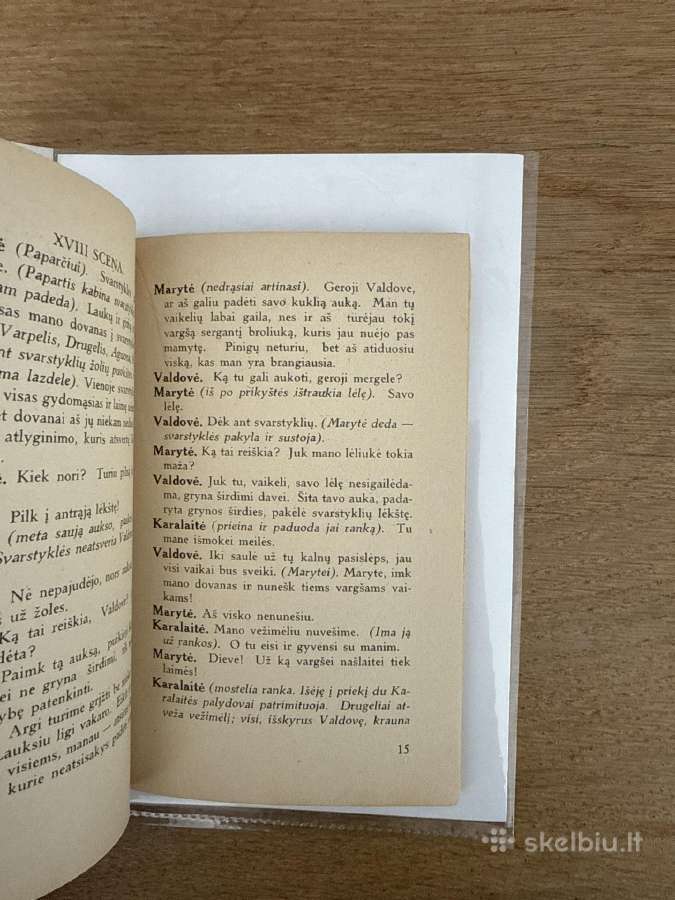 XVIII SCENA
ė (Paparčiui). Svarstyklių
e. (Papartis kabina svarstykles
am padeda). Laukų ir
sas mano dovanas į
Varpelis, Drugelis, Aguona,
ant svarstyklių žolių
ma lazdele). Vienoje
visas gydomąsias ir laimę
et dovanai aš jų niekam
atlyginimo, kuris atsvertų
ė. Kiek nori? Turiu pilną
Pilk į antrąją lėkštę!
(meta saują aukso,
Svarstyklės neatsveria
Nė nepajudėjo, nors
š už žoles.
Ką tai reiškia, Valdove?
dėta?
Paimk tą auksą,
ei ne gryna širdimi,
ybę patenkinti.
Argi turime grįžti be
Lauksiu ligi vakaro.
visiems, manau —
kurie neatsisakys
Marytė (nedrąsiai artinasi). Geroji Valdove,
ar aš galiu padėti savo kuklią auką. Man tų
vaikelių labai gaila, nes ir aš turėjau tokį
vargšą sergantį broliuką, kuris jau nuėjo pas
mamytę. Pinigų neturiu, bet aš atiduosiu
viską, kas man yra brangiausia.
Valdovė. Ką tu gali aukoti, geroji mergele?
Marytė (iš po prikyštės ištraukia lėlę). Savo
lėlę.
Valdovė. Dėk ant svarstyklių. (Marytė deda —
svarstyklės pakyla ir sustoja).
Marytė. Ką tai reiškia? Juk mano lėliukė tokia
maža?
Valdovė. Juk tu, vaikeli, savo lėlę nesigailėda-
ma, gryna širdimi davei. Šita tavo auka, pada-
ryta grynos širdies, pakėlė svarstyklių lėkštę.
Karalaitė (prieina ir paduoda jai ranką). Tu
mane išmokei meilės.
Valdovė. Iki saulė už tų kalnų pasislėps, jau
visi vaikai bus sveiki. (Marytei). Maryte, imk
mano dovanas ir nunešk tiems vargšams vai-
kams!
Marytė. Aš visko nenunešiu.
Karalaitė. Mano vežimėliu nuvešime. (Ima ją
už rankos). O tu eisi ir gyvensi su manim.
Marytė. Dieve! Už ką vargšei našlaitei tiek
laimės!
Karalaitė (mostelia ranka. Išėję į priekį du Ka-
ralaitės palydovai patrimituoja. Drugeliai at-
veža vežimėlį; visi, išskyrus Valdovę, krauna
15
skelbiu.lt